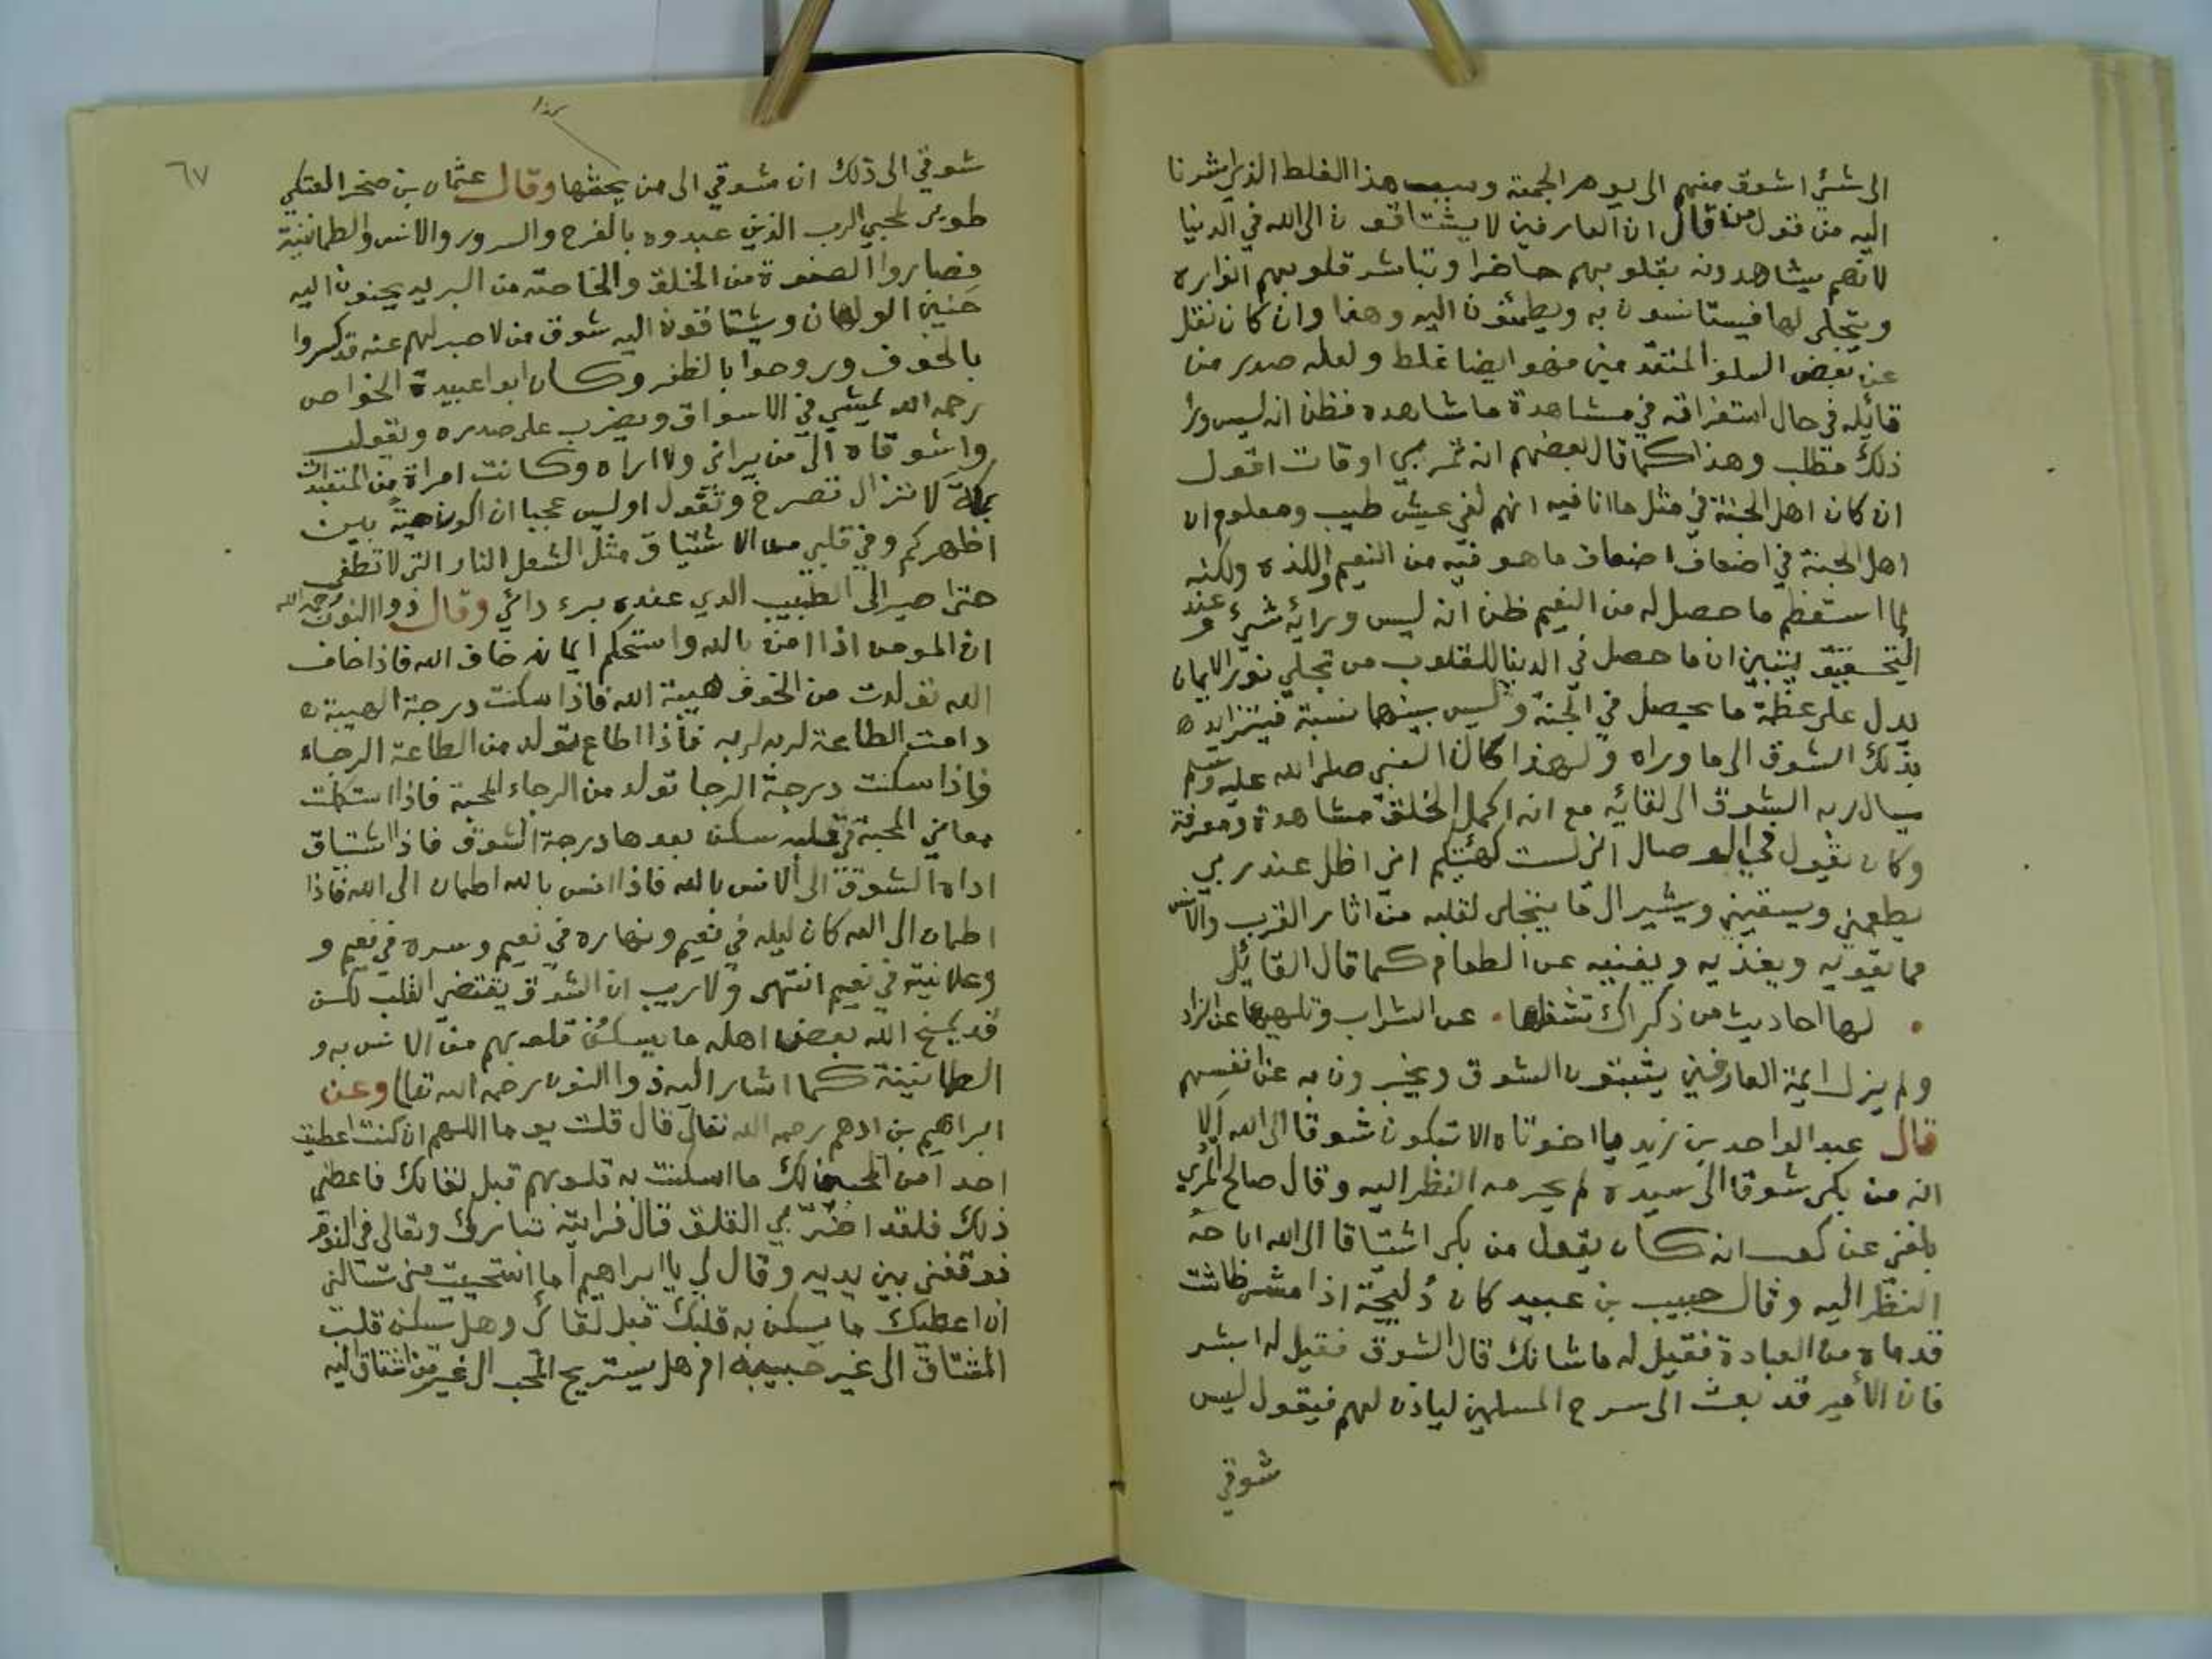 الى شئ اشوق منهم الى يوم الجمعة وسبب هذا الغلط الذي اشرنا
اليه من قول من قال ان العارفين لا يشتاقون الى الله في الدنيا
لانهم يشاهدونه بقلوبهم حاضرا وتباشر قلوبهم انواره
ويتجلى لها فيستانسون به ويطمئنون اليه وهذا وان كان نقل
عن بعض السلف المتقدمين فهو ايضا غلط ولعله صدر من
قائله في حال استغراقه في مشاهدة ما شاهده فظن انه ليس ورا
ذلك مطلب وهذا كما قال بعضهم انه تمر بي اوقات اقول
ان كان اهل الجنة في مثل ما انا فيه انهم لفي عيش طيب ومعلوم ان
اهل الجنة في اضعاف اضعاف ما هو فيه من النعيم واللذه ولكنه
لما استعظم ما حصل له من النعيم ظن انه ليس ورائه شيء وعند
التحقيق يتبين ان ما حصل في الدنيا للقلوب من تجلي نور الايمان
يدل على عظمة ما يحصل في الجنة وليس بينهما نسبة فيتزايد
بذلك الشوق الى ما وراه ولهذا كان النبي صلى الله عليه وسلم
يسال ربه الشوق الى لقائه مع انه اكمل الخلق مشاهدة ومعرفة
وكان يقول في الوصال اني لست كهيئتكم اني اظل عند ربي
يطعمني ويسقيني ويشير الى ما يتجلى لقلبه من اثار القرب والانس
مما يقويه ويغذيه ويغنيه عن الطعام كما قال القائل
لها احاديث من ذكراك تشغلها • عن الشراب وتلهيها عن الزاد
ولم يزل ايمة العارفين يثبتون الشوق ويخبرون به عن انفسهم
قال عبد الواحد بن زيد يا اخوتاه الا تبكون شوقا الى الله الا
انه من بكى شوقا الى سيده لم يحرمه النظر اليه وقال صالح المري
بلغني عن كعب انه كان يقول من بكى اشتياقا الى الله اباحه
النظر اليه وقال حبيب بن عبيد كان دُليجة اذا مشى طاشت
قدماه من العبادة فقيل له ما شانك قال الشوق فقيل له ابشر
فان الامير قد بعث الى سرح المسلمين لياذن لهم فيقول ليس
شوقي
٦٧
كذا
شوقي الى ذلك ان شوقي الى من يحثها وقال عثمان بن صخر العتكي
طوبى لمحبي الرب الذين عبدوه بالفرح والسرور والانس والطمانينة
فصاروا الصفوة من الخلق والخاصة من البريه يحنون اليه
حنين الولهان ويشتاقون اليه شوق من لا صبر لهم عنه قد كسروا
بالخوف وروحوا بالظفر وكان ابو اعبيدة الخواص
رحمه الله يمشي في الاسواق ويضرب على صدره ويقول
واشوقاه الى من يراني ولا اراه وكانت امراة من المتعبدات
بمكة لا تزال تصرخ وتقول اوليس عجبا ان اكون حية بين
اظهركم وفي قلبي من الاشتياق مثل الشعل النار التي لا تطفى
حتى اصير الى الطبيب الذي عنده برء دائي وقال ذوا النون رحمه الله
ان المومن اذا امن بالله واستحكم ايمانه خاف الله فاذا خاف
الله تولدت من الخوف هيبة الله فاذا سكنت درجة الهيبة
دامت الطاعة لربه لربه فاذا اطاع تولد من الطاعة الرجاء
فاذا سكنت درجة الرجا تولد من الرجاء المحبة فاذا استكملت
معاني المحبة في قلبه سكن بعدها درجة الشوق فاذا اشتاق
اداه الشوق الى الانس بالله فاذا انس بالله اطمان الى الله فاذا
اطمان الى الله كان ليله في نعيم ونهاره في نعيم وسره في نعيم و
وعلانيته في نعيم انتهى ولا ريب ان الشوق يقتضي القلب لكن
قد يمنح الله بعض اهله ما يسكن قلوبهم من الانس به و
الطمانينة كما اشار اليه ذوا النون رحمه الله تعالى وعن
ابراهيم بن ادهم رحمه الله تعالى قال قلت يوما اللهم ان كنت اعطيت
احدا من المحبين لك ما اسكنت به قلوبهم قبل لقائك فاعطني
ذلك فلقد اضرّ بي القلق قال فرايته تبارك وتعالى في النوم
فوقفني بين يديه وقال لي يا ابراهيم اما استحييت مني تسالني
ان اعطيك ما يسكن به قلبك قبل لقائي وهل يسكن قلب
المشتاق الى غير حبيبه ام هل يستريح المحب الى غير من اشتاق اليه